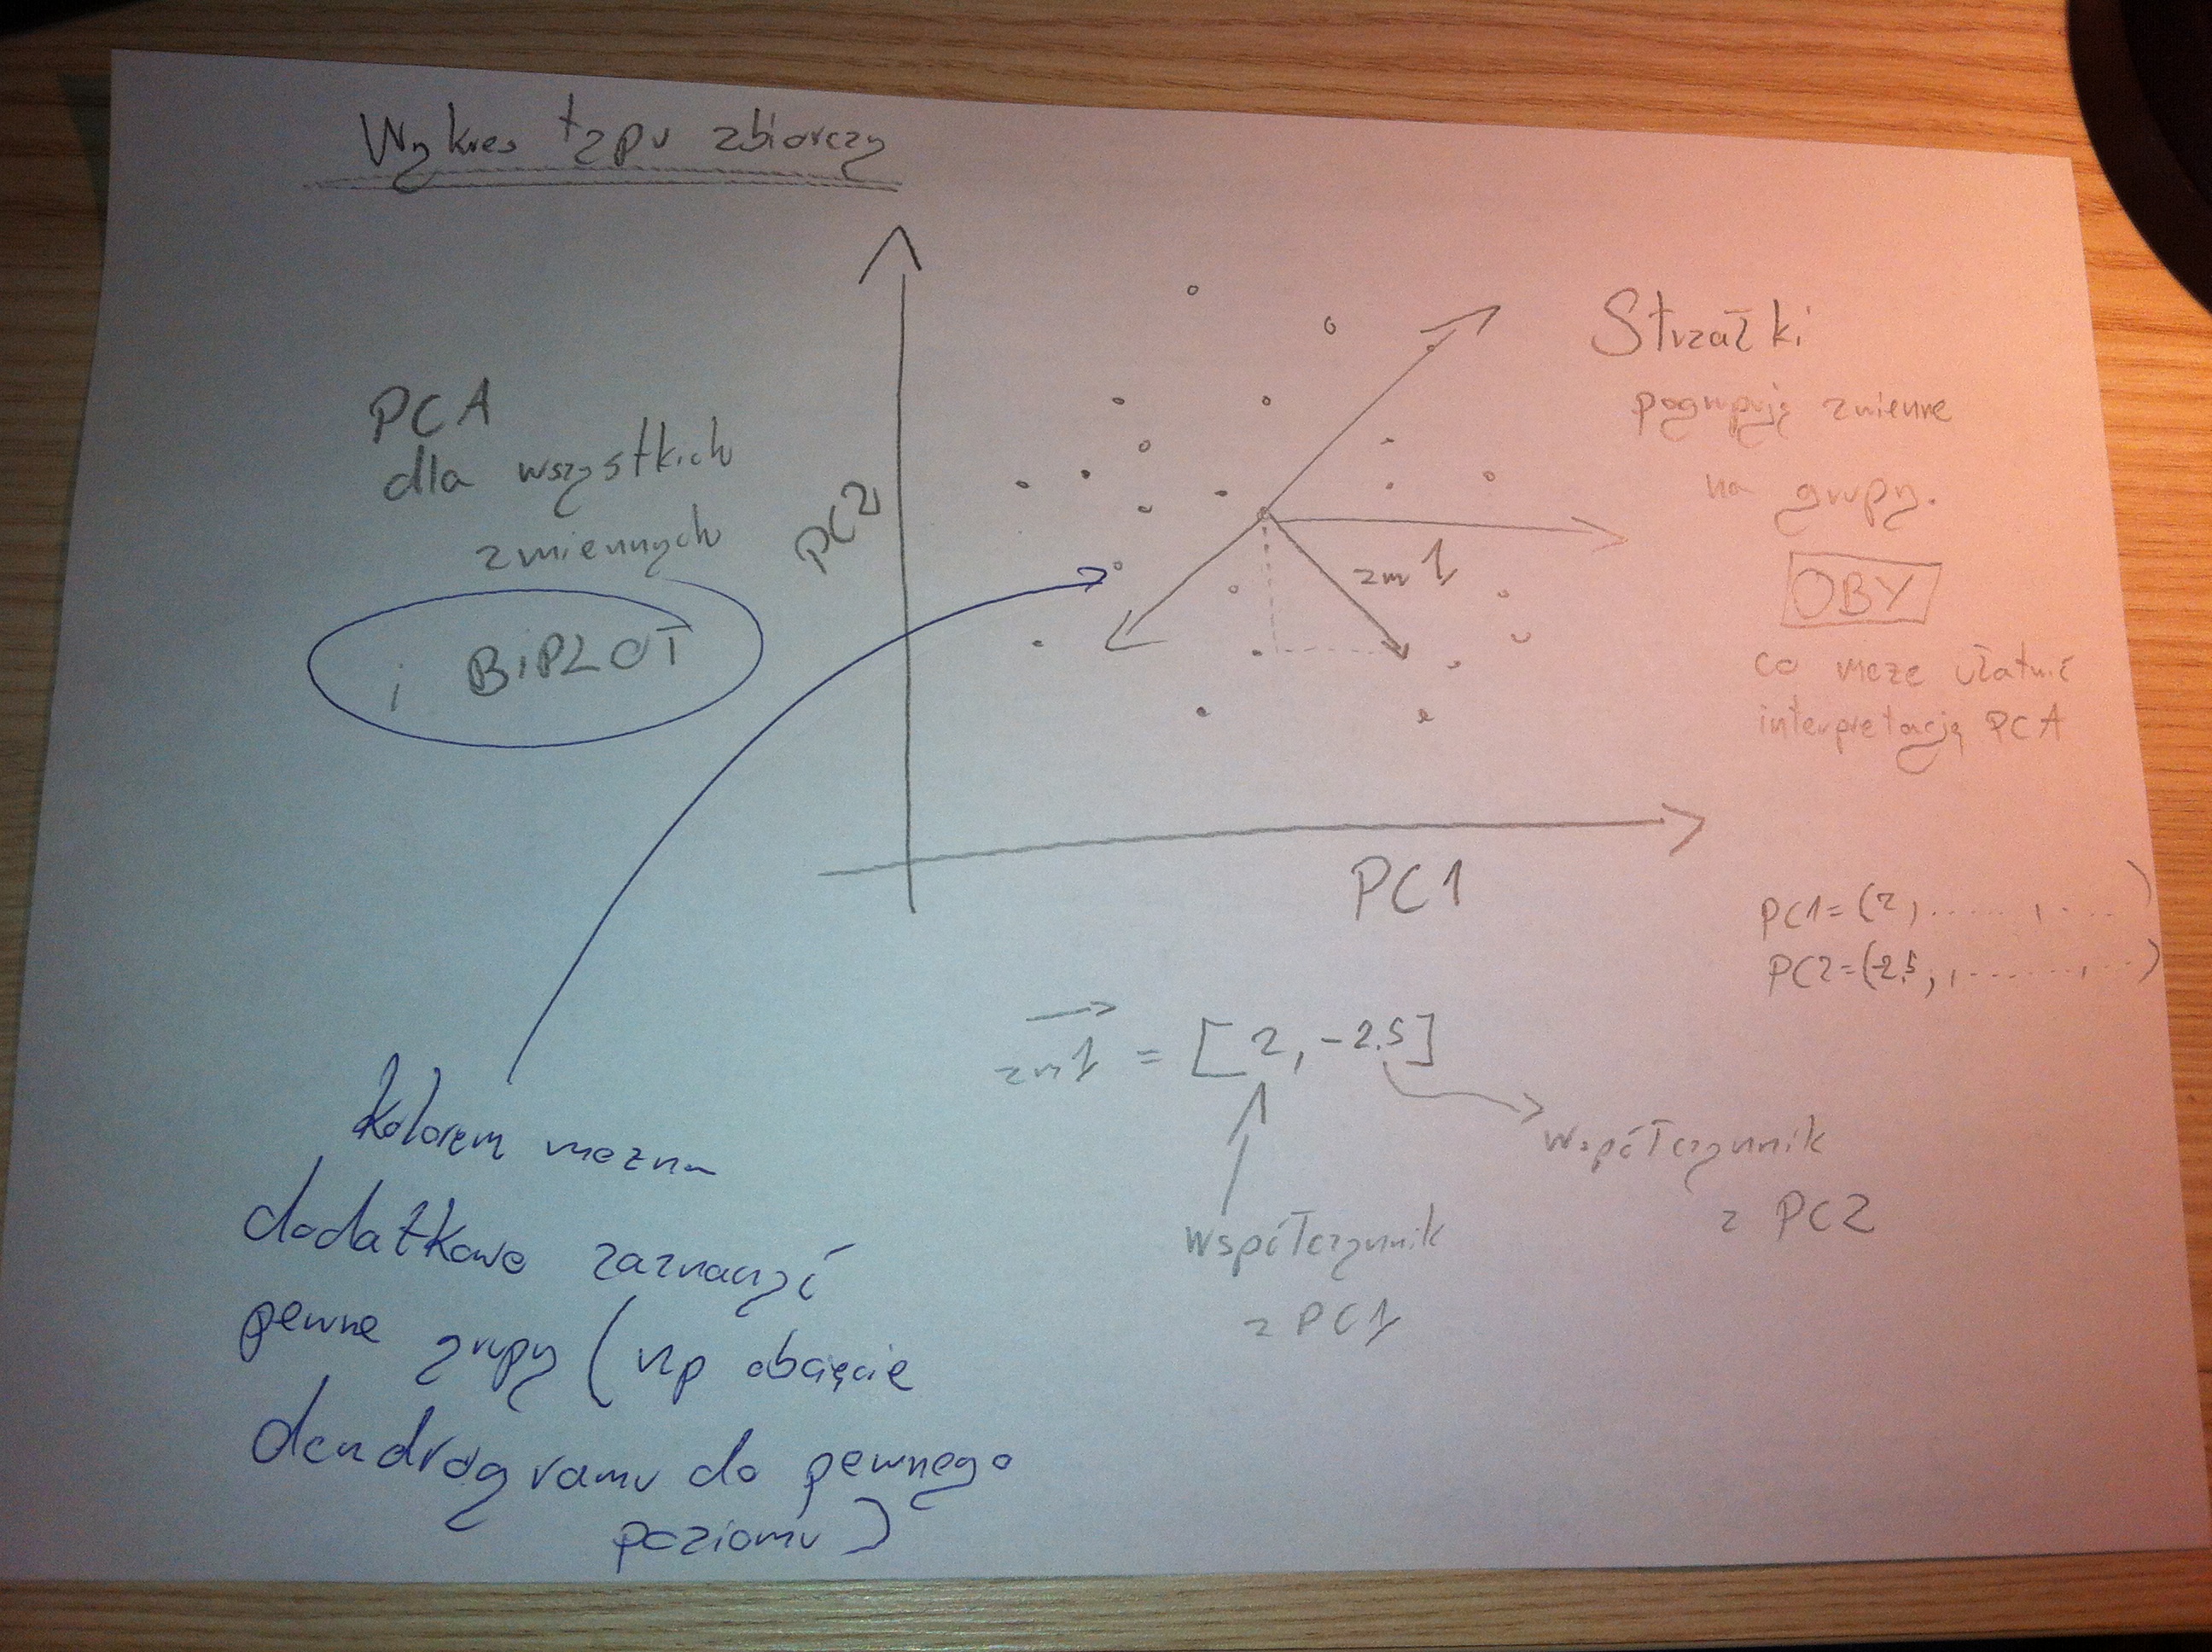 Wykres typu zbiorczy
PCA
dla wszystkich
zmiennych
i BiPLOT
PC2
zm1
PC1
Strzałki
pogrupują zmienne
na grupy.
OBY
co może ułatwić
interpretację PCA
PC1=(2, ......, ....)
PC2=(-2.5, , ......., ...)
zm1 = [2, -2.5]
Współczynnik
z PC2
Współczynnik
z PC1
kolorem można
dodatkowo zaznaczyć
pewne grupy (np obcięcie
dendrogramu do pewnego
poziomu)